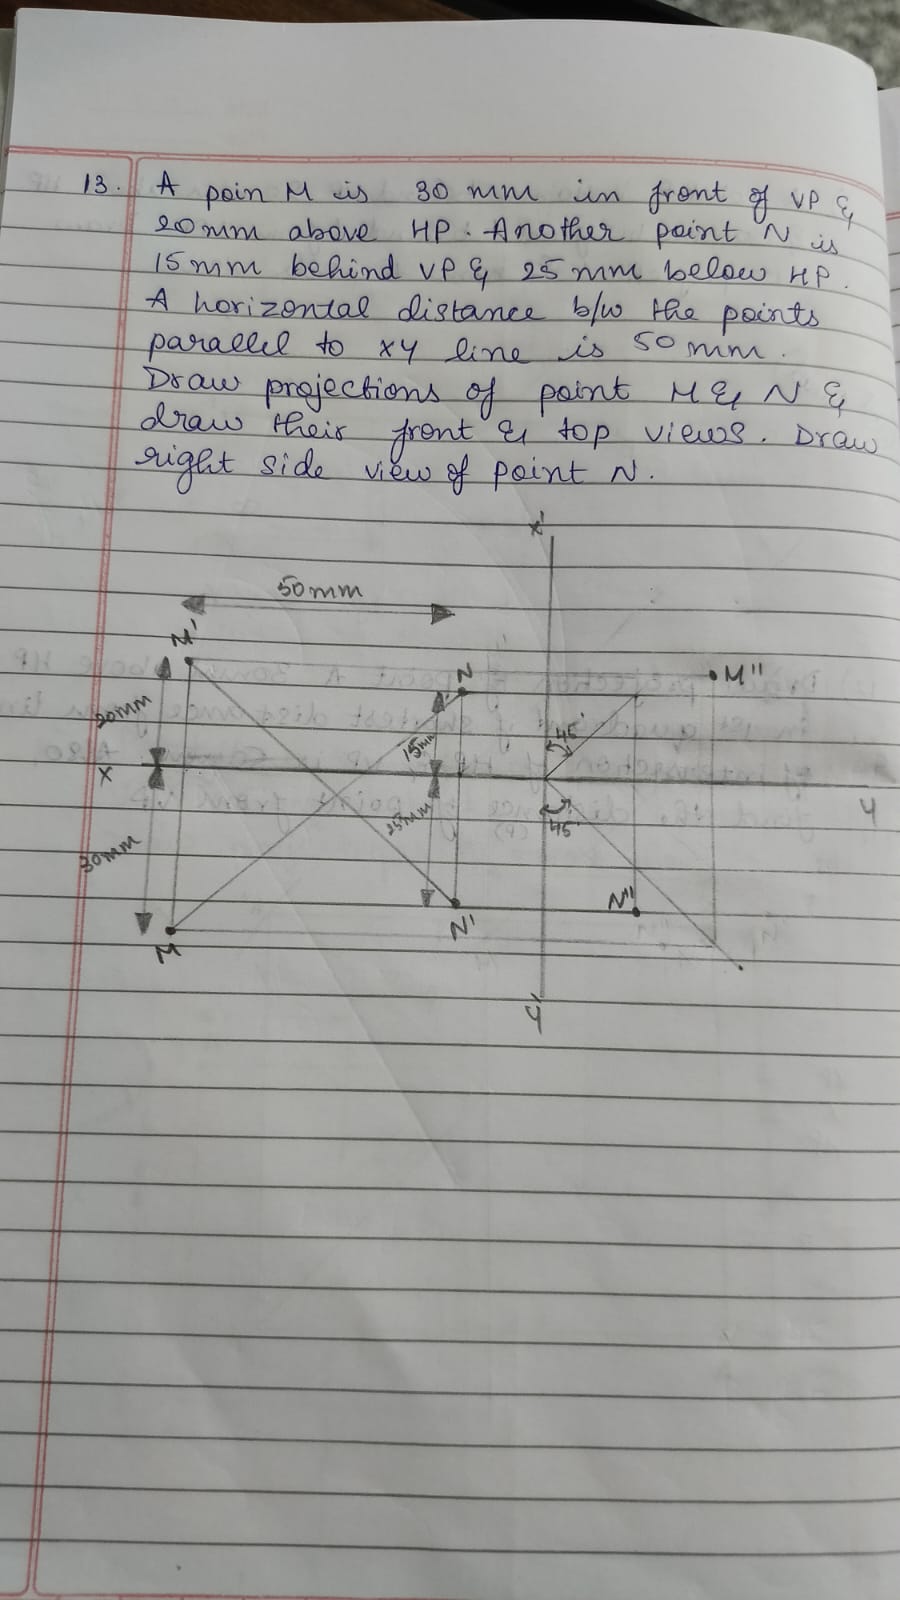 13. A poin M is 30 mm in front of VP &
20mm above HP. Another point N is
15mm behind VP & 25mm below HP.
A horizontal distance b/w the points
parallel to xy line is 50mm.
Draw projections of point M & N &
draw their front & top views. Draw
right side view of point N.
x'
50mm
M'
N
M"
20mm
15mm
45°
X
Y
25mm
45°
30mm
N"
N'
M
Y'